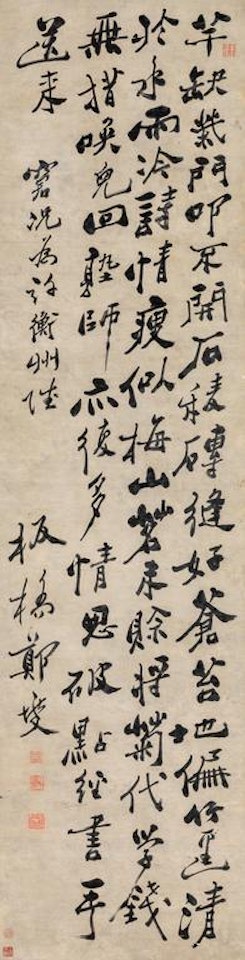 半缺柴門叩不開石稜磚縫好蒼苔地偏竹逕清
於水雨冷詩情瘦似梅山茗未賒將菊代学錢
無措喚兒回塾師亦復多情思破點經書手
送来 窘況為許衡州賦
板橋鄭燮